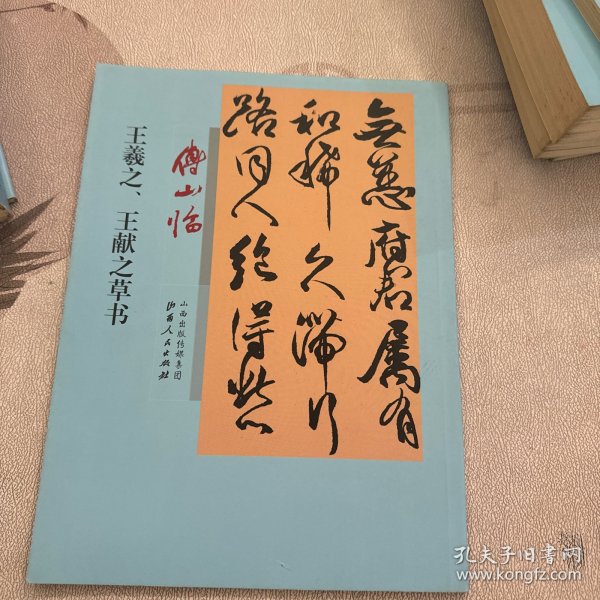 無恙府君屬有
和稀久滯行
路同人絶得愁
傅山临
王羲之、王献之草书
山西出版传媒集团
山西人民出版社
孔夫子旧书网
www.kongfz.com